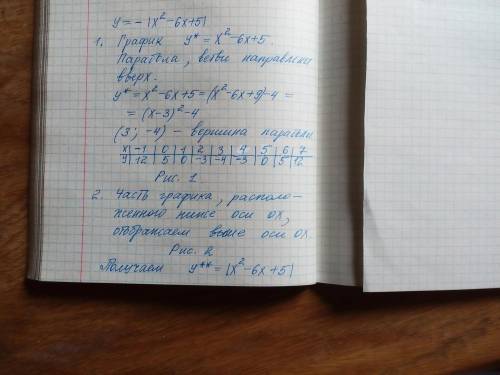 y = - |x²-6x+5|
1. График y* = x²-6x+5.
Парабола, ветви направлены
вверх.
y* = x²-6x+5 = (x²-6x+9)-4 =
= (x-3)²-4
(3; -4) - вершина параболы
x | -1 | 0 | 1 | 2 | 3 | 4 | 5 | 6 | 7
y | 12 | 5 | 0 | -3 | -4 | -3 | 0 | 5 | 12
Рис. 1
2. Часть графика, располо-
женного ниже оси ОХ,
отображаем выше оси ОХ.
Рис. 2
Получаем y** = |x²-6x+5|